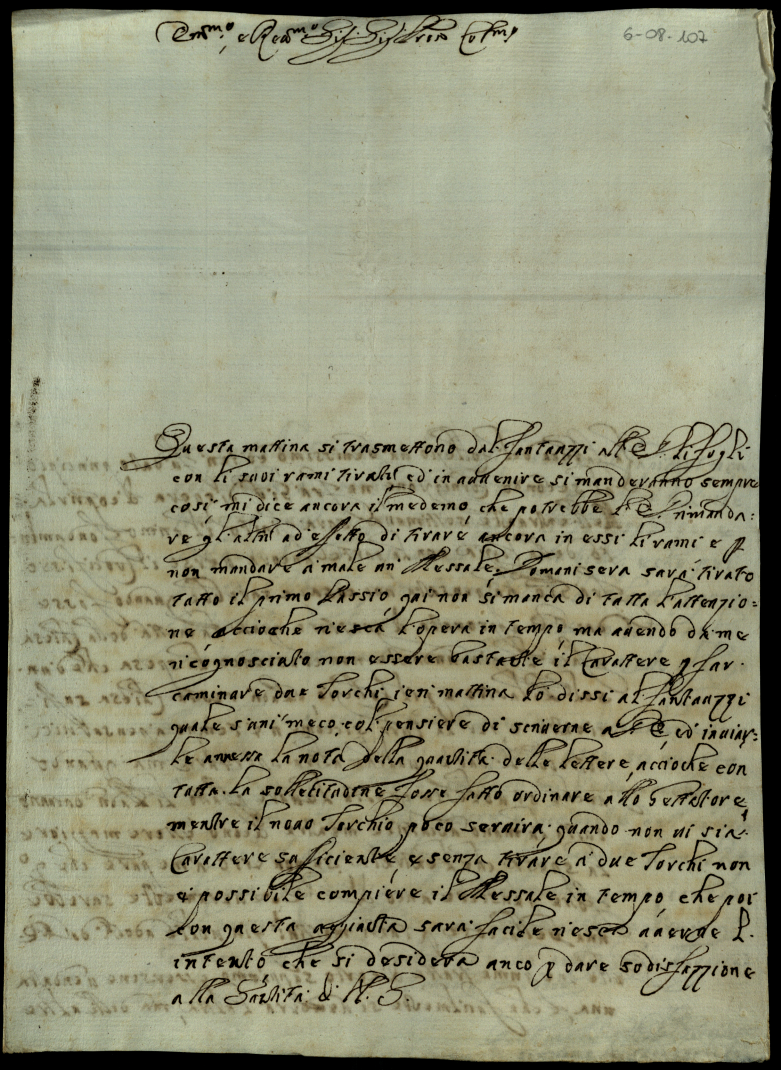 Em.mo e Rev.mo Sig. Sig. Pron Col.mo
6-08-107
Questa mattina si trasmettono dal Fantauzzi all' E. V. li fogli
con li suoi rami tirati ed in auuenire si manderanno sempre
così mi dice ancora il medemo che potrebbe l' E. V. rimanda:
re gl' altri ad effetto di tirare ancora in essi li rami e p
non mandare a male un Messale. Domani sera sarà tirato
tutto il primo Passio qui non si manca di tutta l'attenzio=
ne accioche riesca l'opera in tempo ma auendo da me
ricognosciuto non essere bastante il Carattere p far
caminare due Torchi ieri mattina lo dissi al Fantauzzi
quale s'unì meco col pensiere di scriuerne a V. E. ed inuiar=
le annessa la nota della quantità delle lettere accioche con
tutta la sollecitudine fosse fatto ordinare allo Gettatore
mentre il nouo Torchio poco seruirà quando non ui sia
Carattere suficiente e senza tirare a due Torchi non
è possibile compiere il Messale in tempo che poi
con questa aggiunta sarà facile riesca auerne l'
intento che si desidera anco p dare sodisfazzione
alla Santità di N. S.